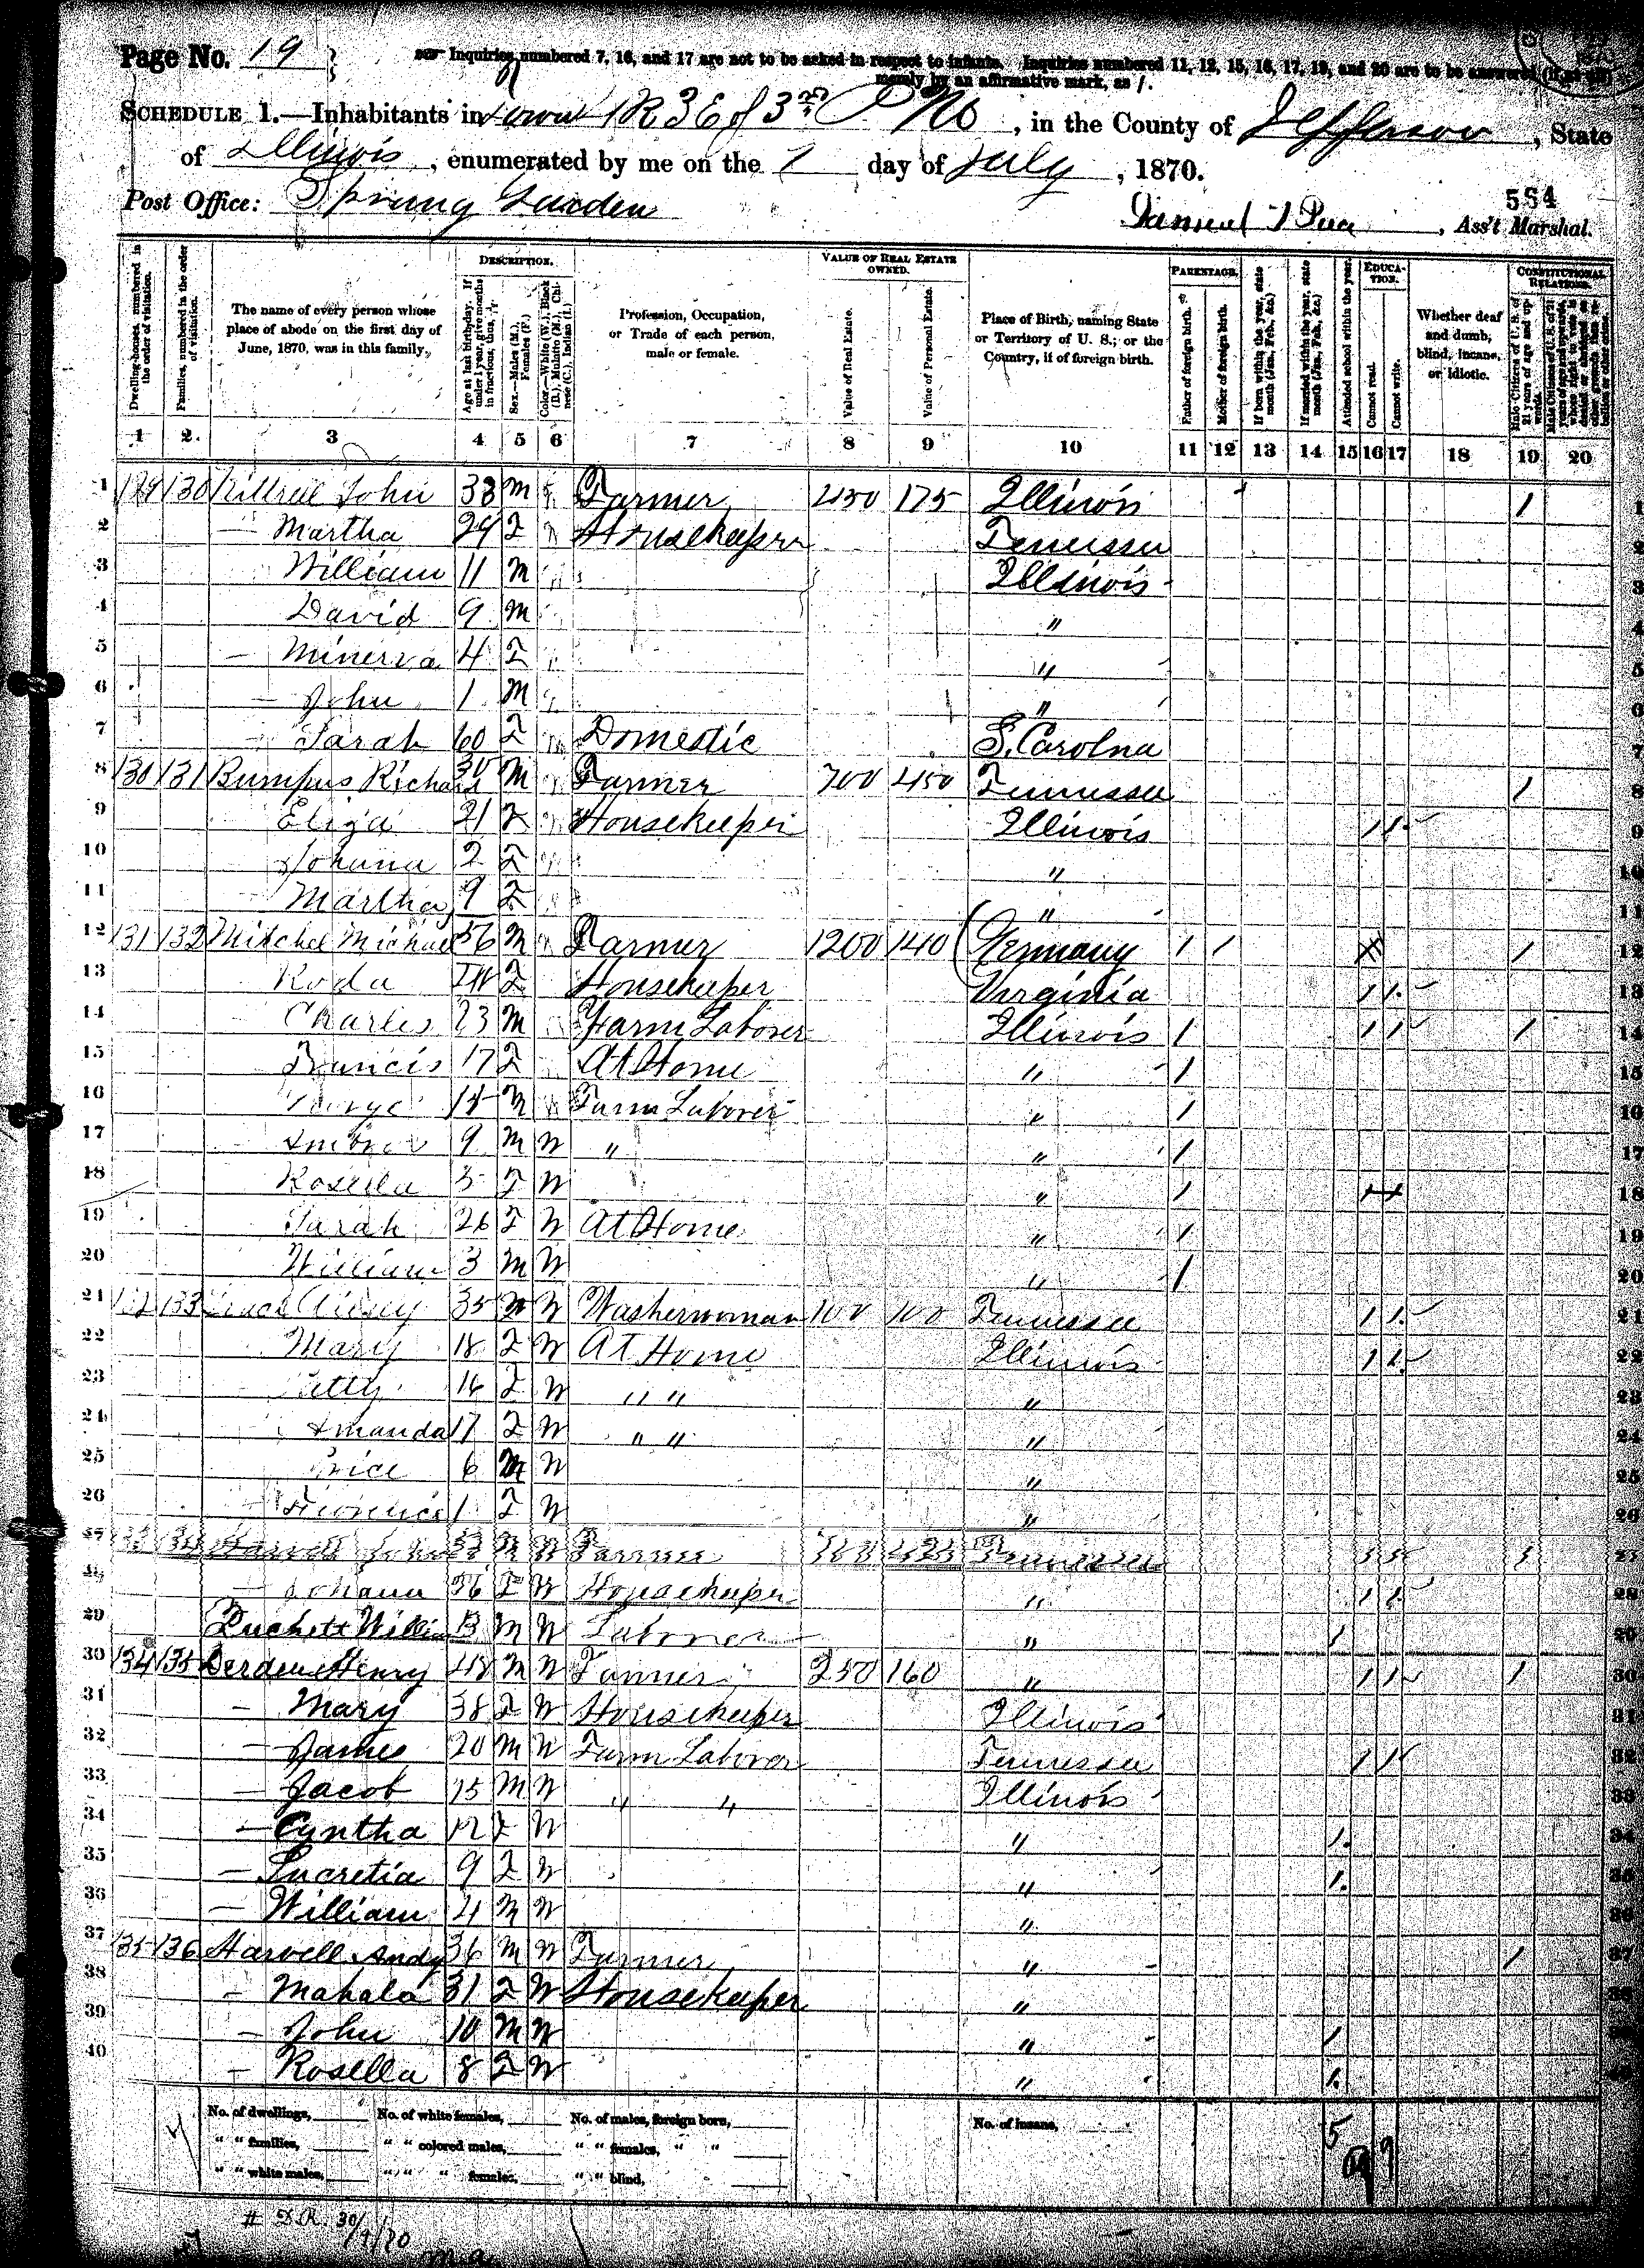 Page No. 19
Inquiries numbered 7, 16, and 17 are not to be asked in respect to infants. Inquiries numbered 11, 12, 15, 16, 17, 19, and 20 are to be answered (if at all)
merely by an affirmative mark, as /.
SCHEDULE 1.—Inhabitants in R 3 E of 3rd P M, in the County of Jefferson, State
of Illinois, enumerated by me on the 7 day of July, 1870.
Post Office: Spring Garden
584
, Ass't Marshal.
Dwelling-houses, numbered in the order of visitation.
Families, numbered in the order of visitation.
The name of every person whose place of abode on the first day of June, 1870, was in this family.
DESCRIPTION.
Age at last birthday. If under 1 year, give months in fractions, thus,
Sex.—Males (M.), Females (F.)
Color.—White (W.), Black (B.), Mulatto (M.), Chinese (C.), Indian (I.)
Profession, Occupation, or Trade of each person, male or female.
VALUE OF REAL ESTATE OWNED.
Value of Real Estate.
Value of Personal Estate.
Place of Birth, naming State or Territory of U. S.; or the Country, if of foreign birth.
PARENTAGE.
Father of foreign birth.
Mother of foreign birth.
If born within the year, state month (Jan., Feb., &c.)
If married within the year, state month (Jan., Feb., &c.)
Attended school within the year.
EDUCATION.
Cannot read.
Cannot write.
Whether deaf and dumb, blind, insane, or idiotic.
CONSTITUTIONAL RELATIONS.
Male Citizens of U. S. of 21 years of age and upwards.
1 2 3 4 5 6 7 8 9 10 11 12 13 14 15 16 17 18 19 20
1 129 130 John 33 M Farmer 450 175 Illinois 1 1
2 — Martha 29 F Housekeeper Tennessee 2
3 William 11 M Illinois 3
4 David 9 M " 4
5 — Minerva 4 F " 5
6 — John 1 M " 6
7 — Sarah 60 F Domestic S. Carolna 7
8 130 131 Bumpus Richard 30 M Farmer 700 450 Tennessee 1 8
9 Eliza 21 F Housekeeper Illinois 1 1 9
10 Johana 2 F " 10
11 Martha 9 F " 11
12 131 132 Mitchel Michael 56 M Farmer 1200 140 Germany 1 1 1 12
13 Roda 48 F Housekeeper Virginia 1 1 13
14 Charles 23 M Farm Laborer Illinois 1 1 1 1 14
15 Francis 17 F At Home " 1 15
16 George 15 M Farm Laborer " 1 16
17 9 M W " " 1 17
18 Rosella 5 F W " 1 18
19 Sarah 26 F W At Home " 1 19
20 William 3 M W " 1 20
21 132 133 35 W Washerwoman 100 100 Tennessee 1 1 21
22 Mary 18 F W At Home Illinois 1 1 22
23 16 F W " " " 23
24 Amanda 17 F W " " " 24
25 Price 6 M W " 25
26 Florence 1 F W " 26
27 133 134 Harvell John M W Farmer Tennessee 1 1 1 27
28 — Johana 56 F W Housekeeper " 1 1 28
29 Puckett William 13 M W Laborer " 1 29
30 134 135 Derden Henry 48 M W Farmer 250 160 " 1 1 1 30
31 — Mary 38 F W Housekeeper Illinois 31
32 — James 20 M W Farm Laborer Tennessee 1 1 32
33 — Jacob 15 M W " " Illinois 33
34 — Cyntha 12 F W " 1 34
35 — Lucretia 9 F W " 1 35
36 — William 4 M W " 36
37 135 136 Harvell Andy 36 M W Farmer " 1 37
38 — Mahala 31 F W Housekeeper " 38
39 — John 10 M W " 1 39
40 — Rosella 8 F W " 1 40
No. of dwellings, No. of white females, No. of males, foreign born, No. of insane,
" " families, " " colored males, " " females, " "
" " white males, " " " females, " " blind,
5 9 9
# D.R. 30/9/70